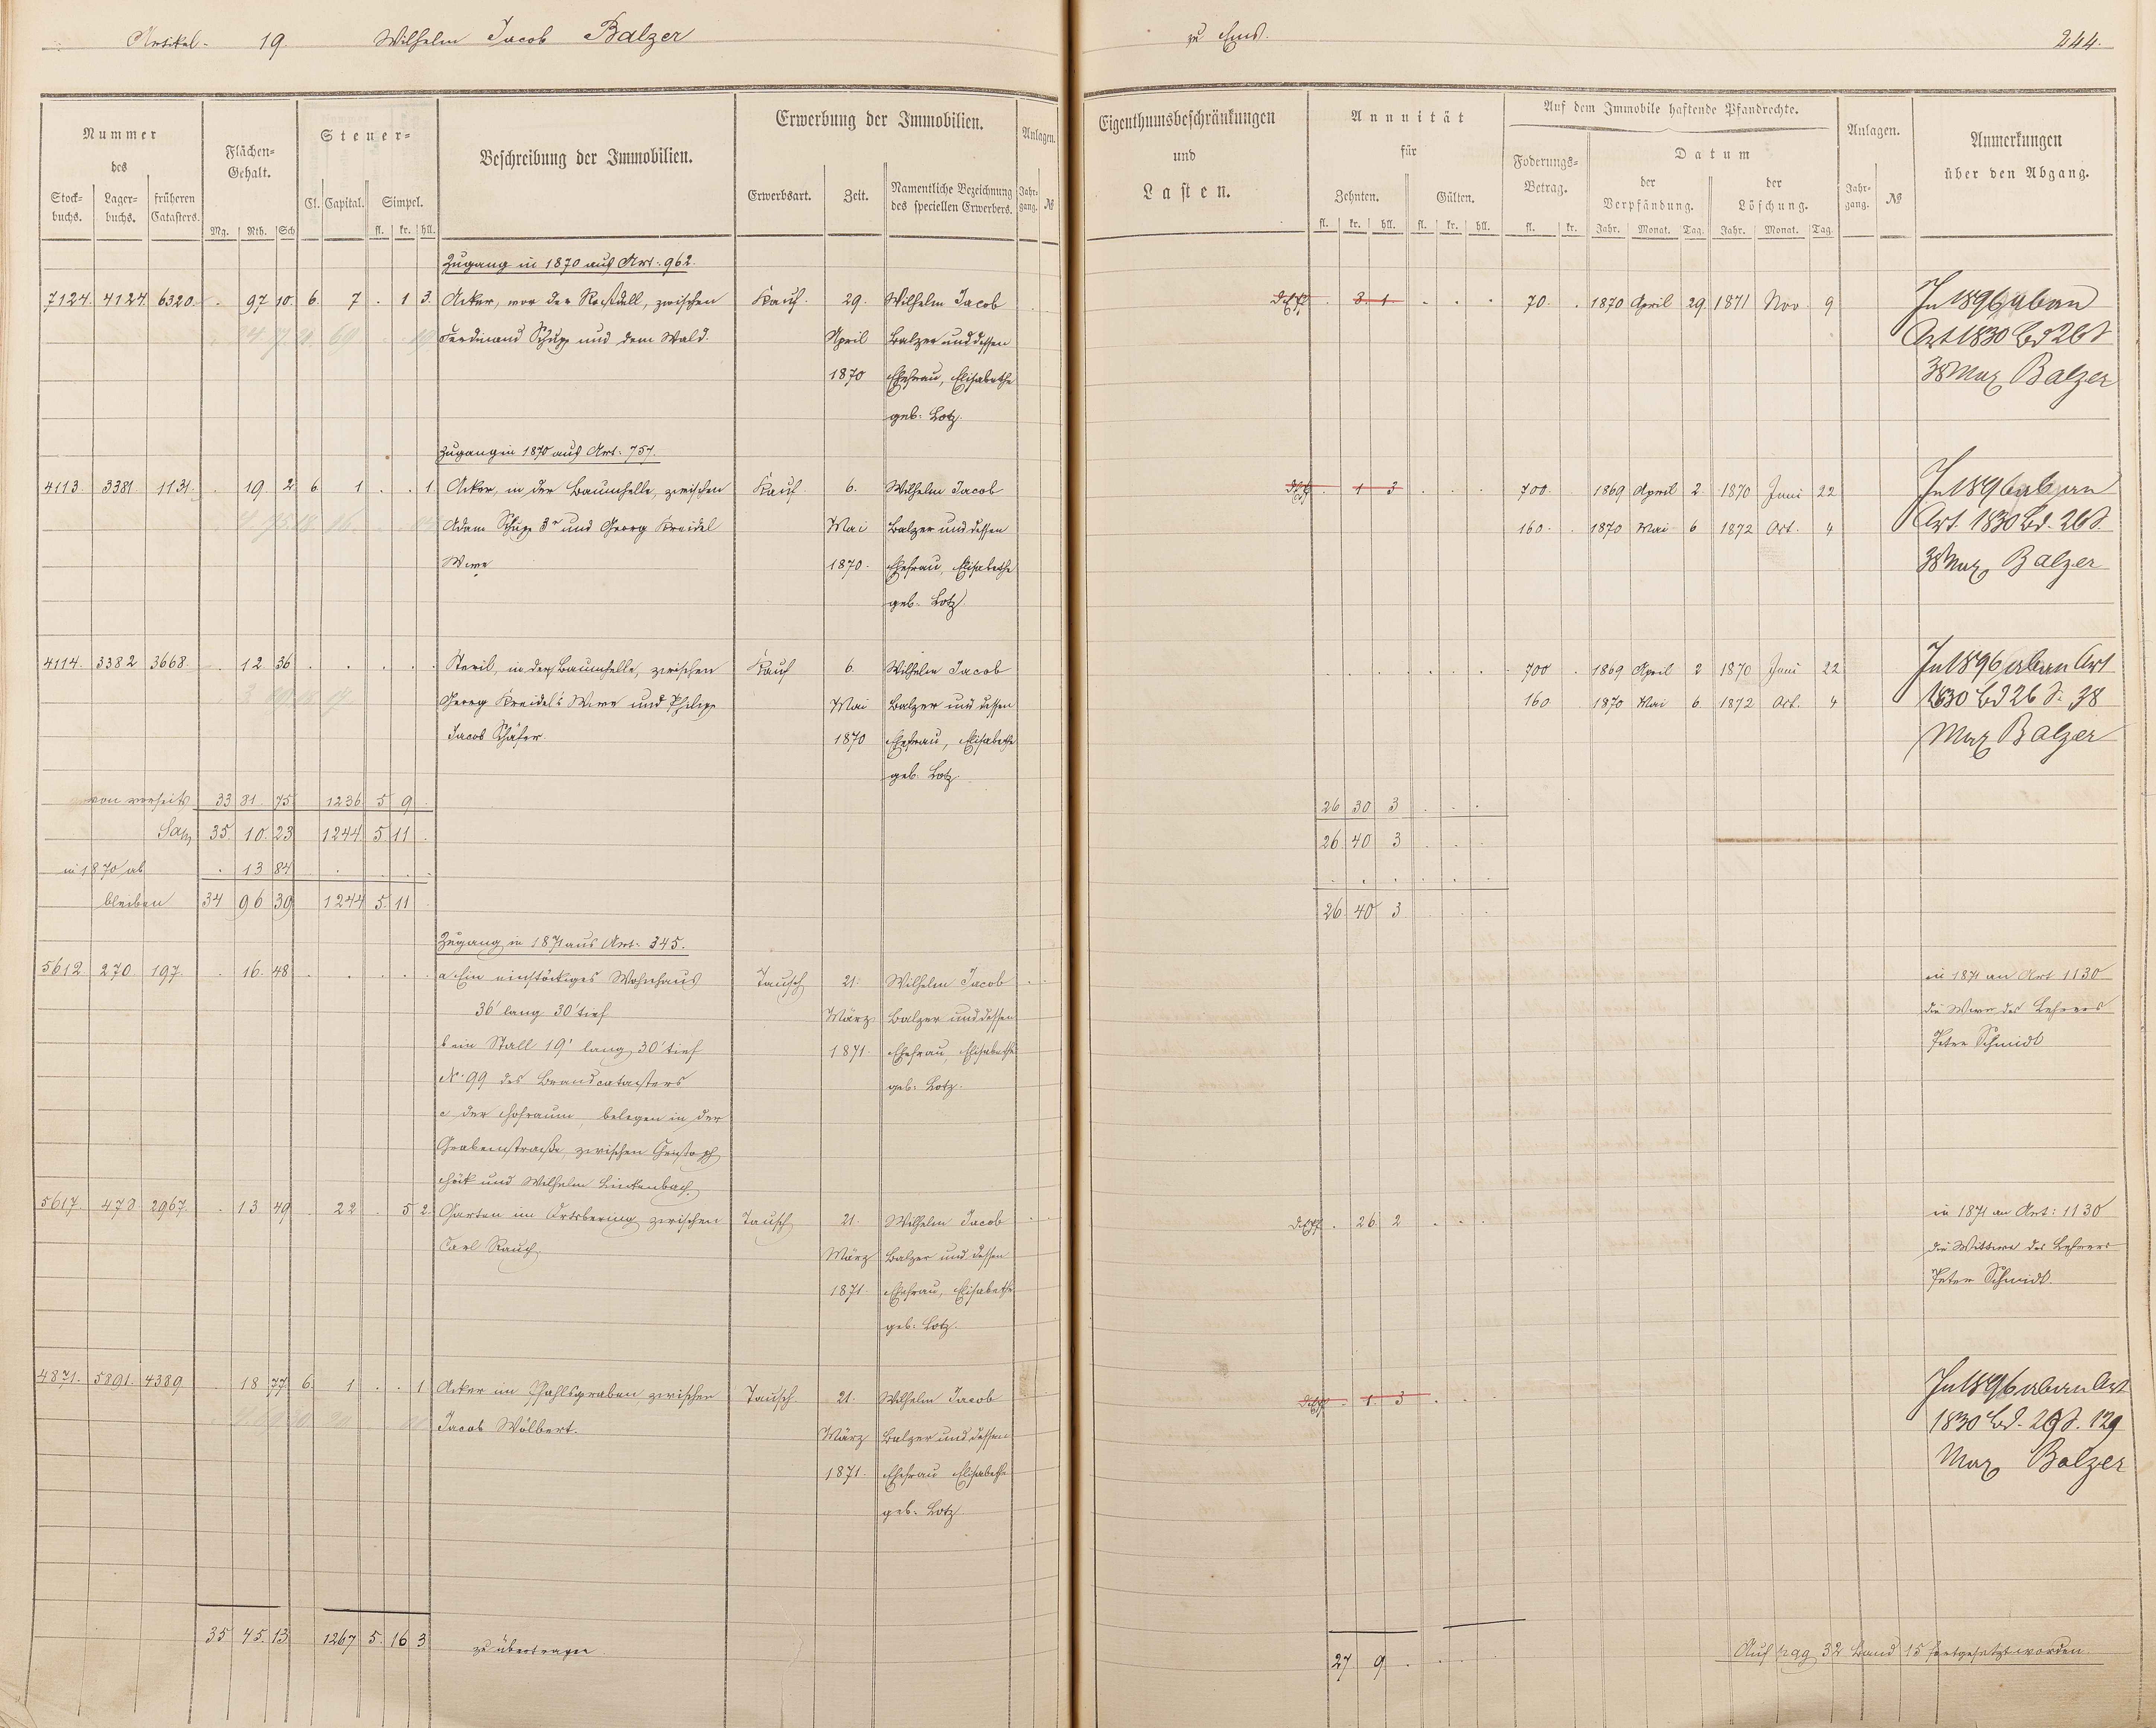 Artikel. 19. Wilhelm Jacob Balzer zu Ems. 244.
Nummer des
Stock-buchs. Lager-buchs. früheren Catasters.
Flächen-Gehalt.
Mg. Rth. Sch
Steuer-
Cl. Capital. Simpel.
fl. kr. hll.
Beschreibung der Immobilien.
Erwerbung der Immobilien.
Erwerbsart. Zeit. Namentliche Bezeichnung des speciellen Erwerbers.
Anlagen.
Jahr-gang. №
Eigenthumsbeschränkungen
und
Lasten.
Annuität
für
Zehnten. Gülten.
fl. kr. hll. fl. kr. hll.
Auf dem Immobile haftende Pfandrechte.
Foderungs-Betrag.
fl. kr.
Datum
der Verpfändung. der Löschung.
Jahr. Monat. Tag. Jahr. Monat. Tag.
Anlagen.
Jahr-gang. №
Anmerkungen
über den Abgang.
Zugang in 1870 aus Art. 962.
7124. 4124. 6320. . 97 10. 6. 7 . 1 3. Acker, vor der , zwischen Kauf. 29. Wilhelm Jacob . 3 1 . . . 70. . 1870 April 29. 1871 Nov. 9 In 1896 ab an
Ferdinand Schupp und dem Wald. April Balzer und dessen Art 1830 Bd 26 S
1870 Ehefrau, Elisabethe 38 Max Balzer
geb: Lotz.
Zugang in 1870 aus Art. 757.
4113. 3381. 1131. . 19. 2 6 1 . . 1 Acker, in der Baumhelle, zwischen Kauf. 6. Wilhelm Jacob . 1 3 . . . 700. . 1869 April 2. 1870 Juni 22 In 1896 ab an
Adam Schupp 3r und Georg Kreidel Mai Balzer und dessen 160. . 1870 Mai 6 1872 Oct. 4 Art. 1830 Bd. 26 S.
Wwe 1870. Ehefrau, Elisabethe 38 Max Balzer
geb. Lotz
4114. 3382 3668. . 12 36 . . . . . Steril, in der Baumhelle, zwischen Kauf 6. Wilhelm Jacob . . . . . . 700 . 1869 April 2 1870 Juni 22 In 1896 ab an Art
Georg Kreidel's Wwe und Philipp Mai Balzer und dessen 160. 1870 Mai 6. 1872 Oct. 4 1830 Bd 26 S. 38
Jacob Schäfer. 1870 Ehefrau, Elisabethe Max Balzer
geb. Lotz.
von vorseits 33 81. 75 1236 5 9 . 26 30 3 . . .
Sa 35. 10. 23 1244 5. 11 . 26 40 3 . . .
in 1870 ab . 13 84 . . . . . . . . .
bleiben 34 96 39 1244 5. 11 26. 40 3 . . .
Zugang in 1871 aus Art: 345.
5612 270 197. . 16. 48 . . . . . a Ein einstöckiges Wohnhaus Tausch 21. Wilhelm Jacob . . in 1871 an Art 1130
36' lang 30' tief März Balzer und dessen die Wwe des Lehrers
b ein Stall 19' lang, 30' tief 1871. Ehefrau, Elisabethe Peter Schmidt
N. 99 des Brandcatasters geb: Lotz.
c der Hofraum, belegen in der
Grabenstraße, zwischen
und Wilhelm Linkenbach.
5617. 478 2967. . 13 49 . 22 . 5 2. Garten im Ortsbering, zwischen Tausch 21. Wilhelm Jacob . . . 26 2 . . . in 1871 an Art: 1130
Carl Rauch. März Balzer und dessen die Wittwe des Lehrers
1871. Ehefrau, Elisabethe Peter Schmidt.
geb: Lotz.
4871. 5891. 4389 . 18 77. 6. 1 . . 1 Acker im Pfahlsgraben zwischen Tausch. 21. Wilhelm Jacob . 1 3 . . . In 1896 ab an Art
Jacob Wölbert. März Balzer und dessen 1830 Bd. 26 S. 129
1871. Ehefrau Elisabethe Max Balzer
geb: Lotz
35 45. 13 1267 5. 16 3 zu übertragen. 27 9 . . . Auf pag 32 Band 15 fortgesetzt worden.